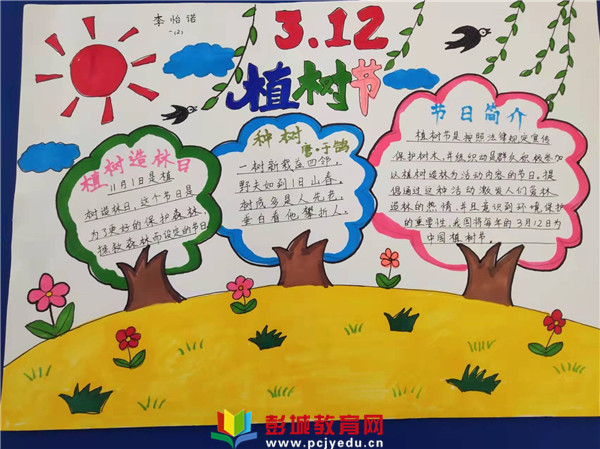 李怡诺
一(2)
3.12
植树节
植树造林日
11月1日是植
树造林日,这个节日是
为了更好的保护森林,
拯救森林而设定的节日
种树
唐·于鹄
一树新栽益四邻,
野夫如到旧山春,
树成多是人先老,
垂白看他攀折人。
节日简介
植树节是按照法律规定宣传
保护树木,并组织动员群众积极参
加以植树造林为活动内容的节日。提
倡通过这种活动激发人们爱林、
造林的热情,并且意识到环境保护
的重要性,我国将每年的3月12日为
中国植树节。
彭城教育网
www.pcjyedu.cn